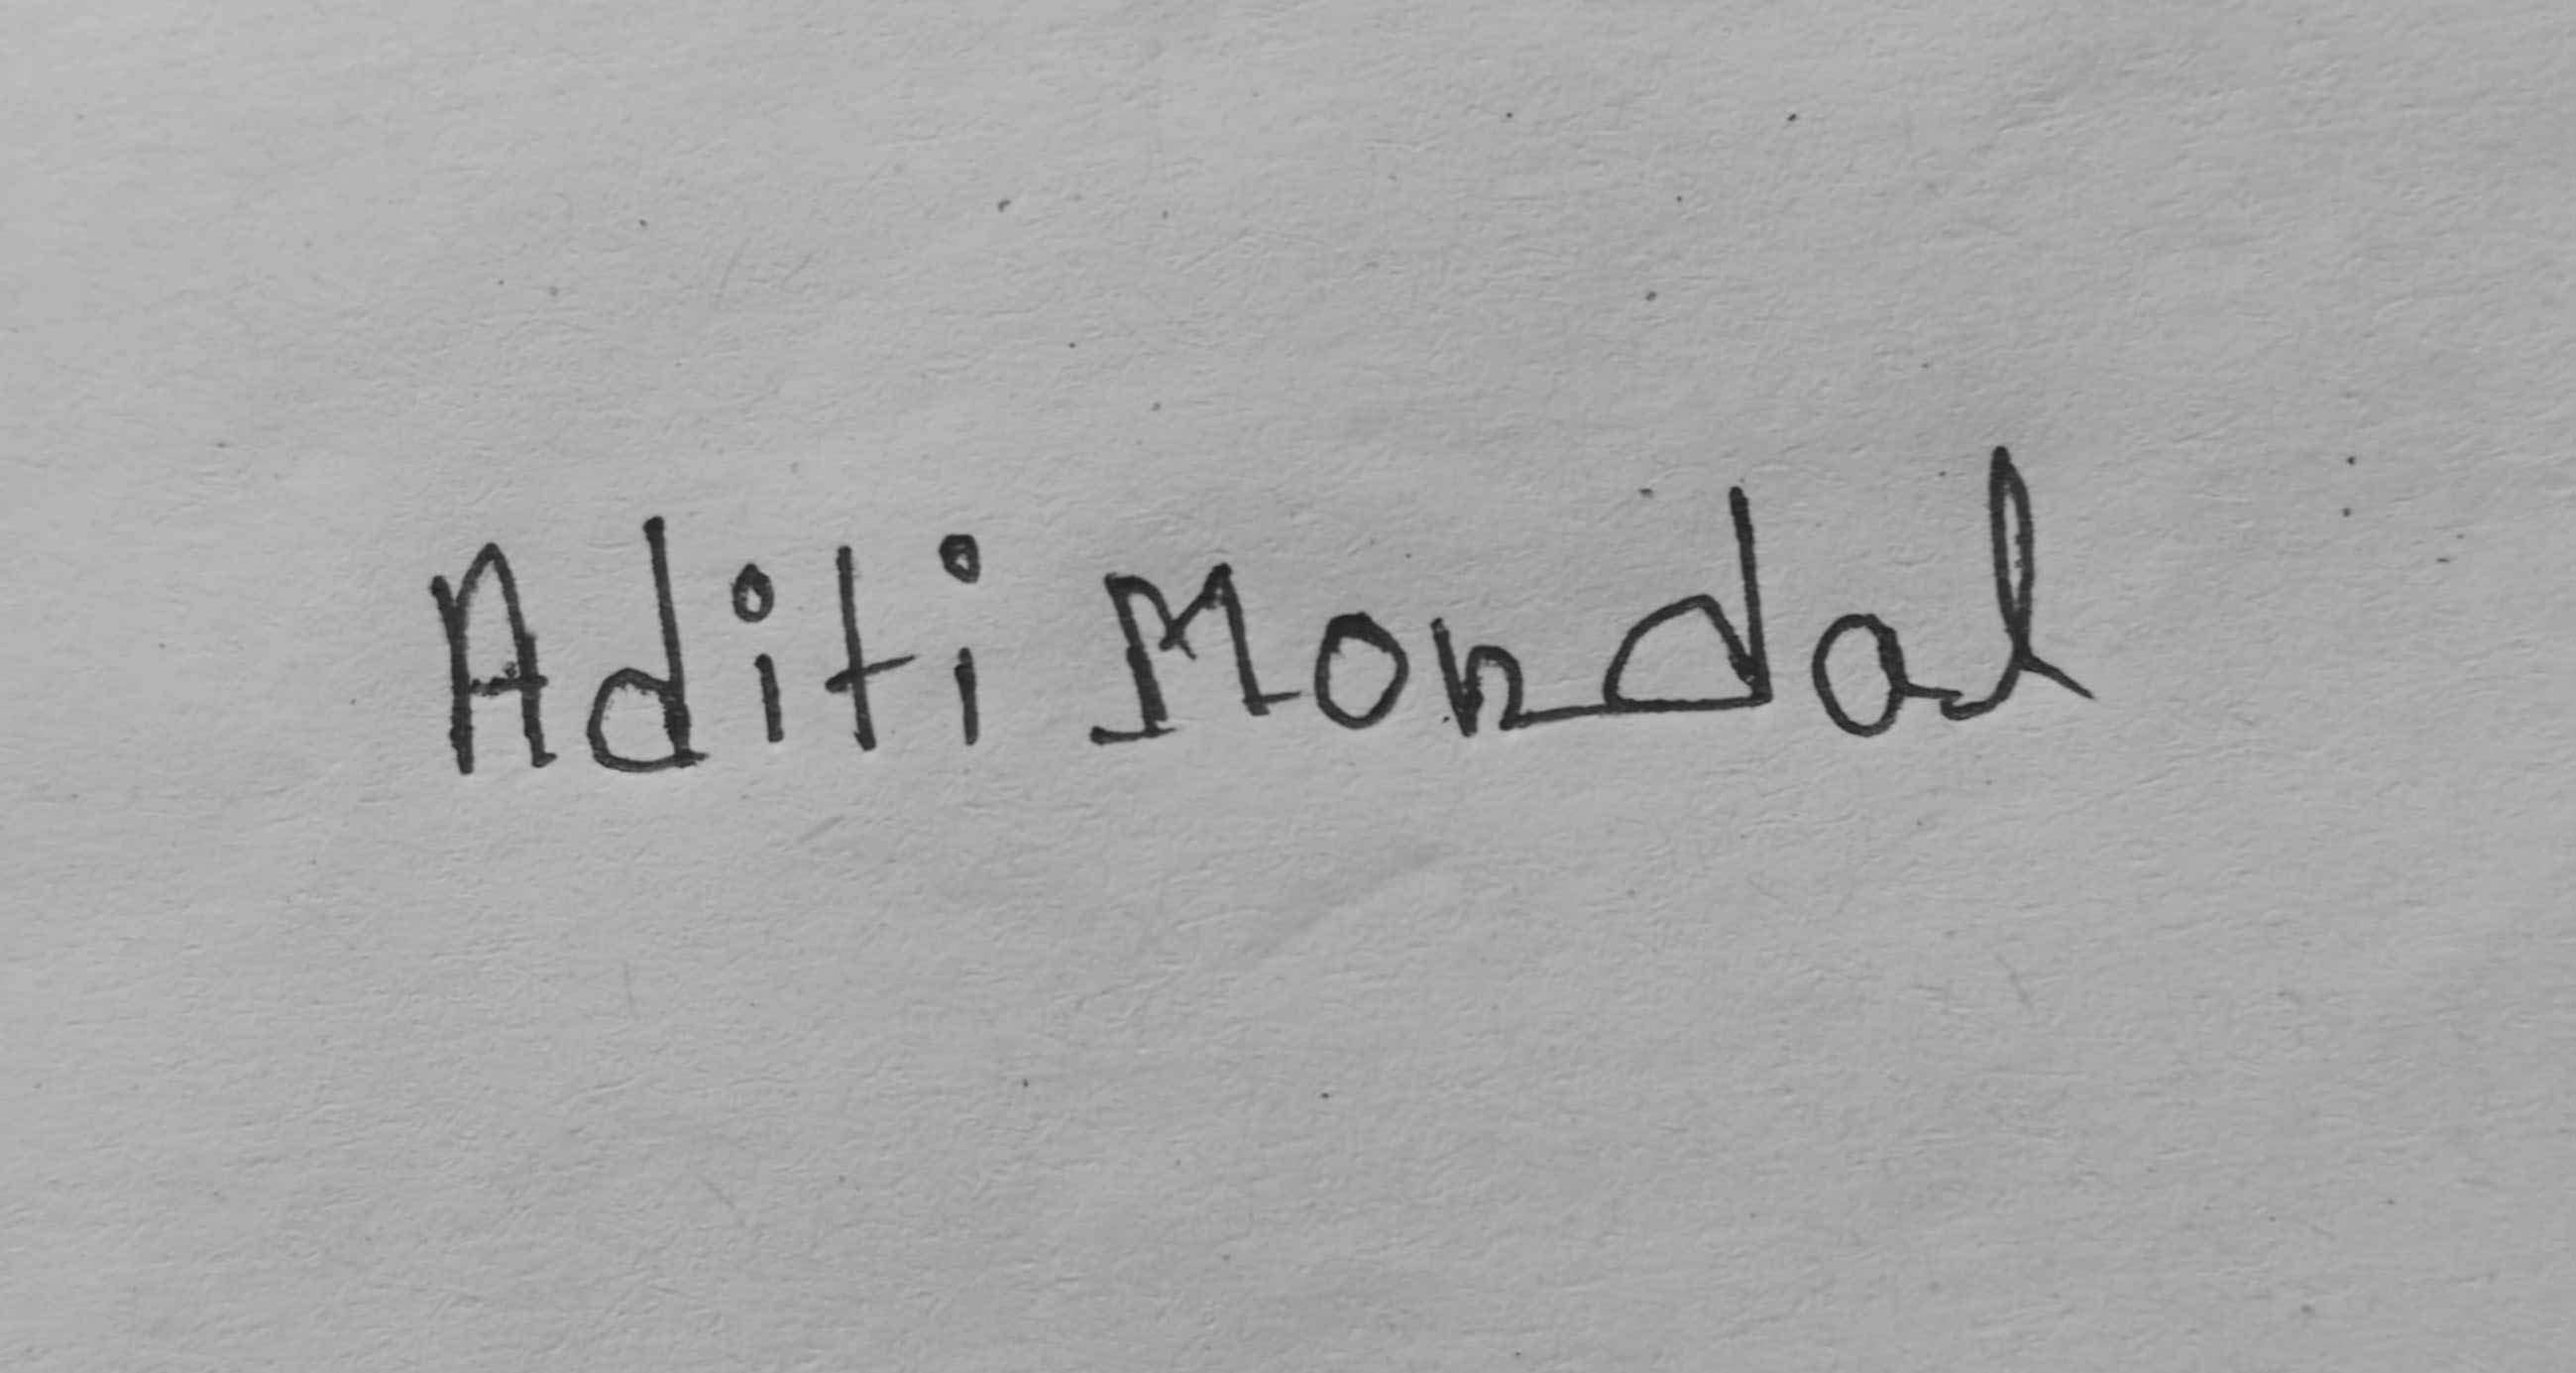 Aditi Mondal